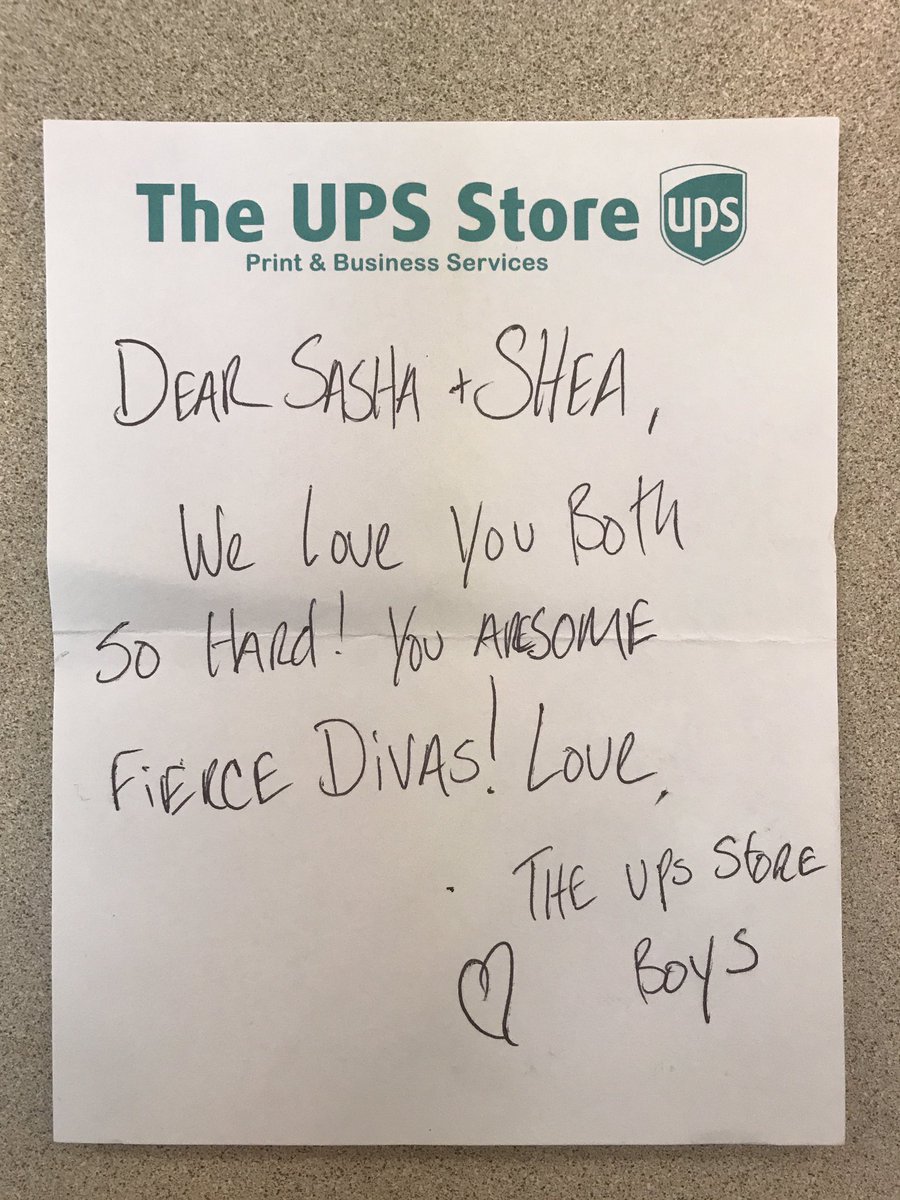 The UPS Store ups
Print & Business Services
DEAR SASHA + SHEA,
We love You Both
SO HARd! You AWESOME
FiERCE DiVAS! Love,
THE UPS STORE
BoyS